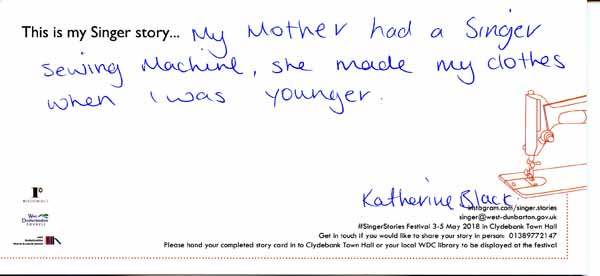 This is my Singer story... My Mother had a Singer
Sewing Machine, she made my clothes
when I was younger.
Katherine Black
instagram.com/singer.stories
singer@west-dunbarton.gov.uk
#SingerStories Festival 3-5 May 2018 in Clydebank Town Hall
Get in touch if you would like to share your story in person: 01389772147
Please hand your completed story card in to Clydebank Town Hall or your local WDC library to be displayed at the festival
West
Dunbartonshire
COUNCIL